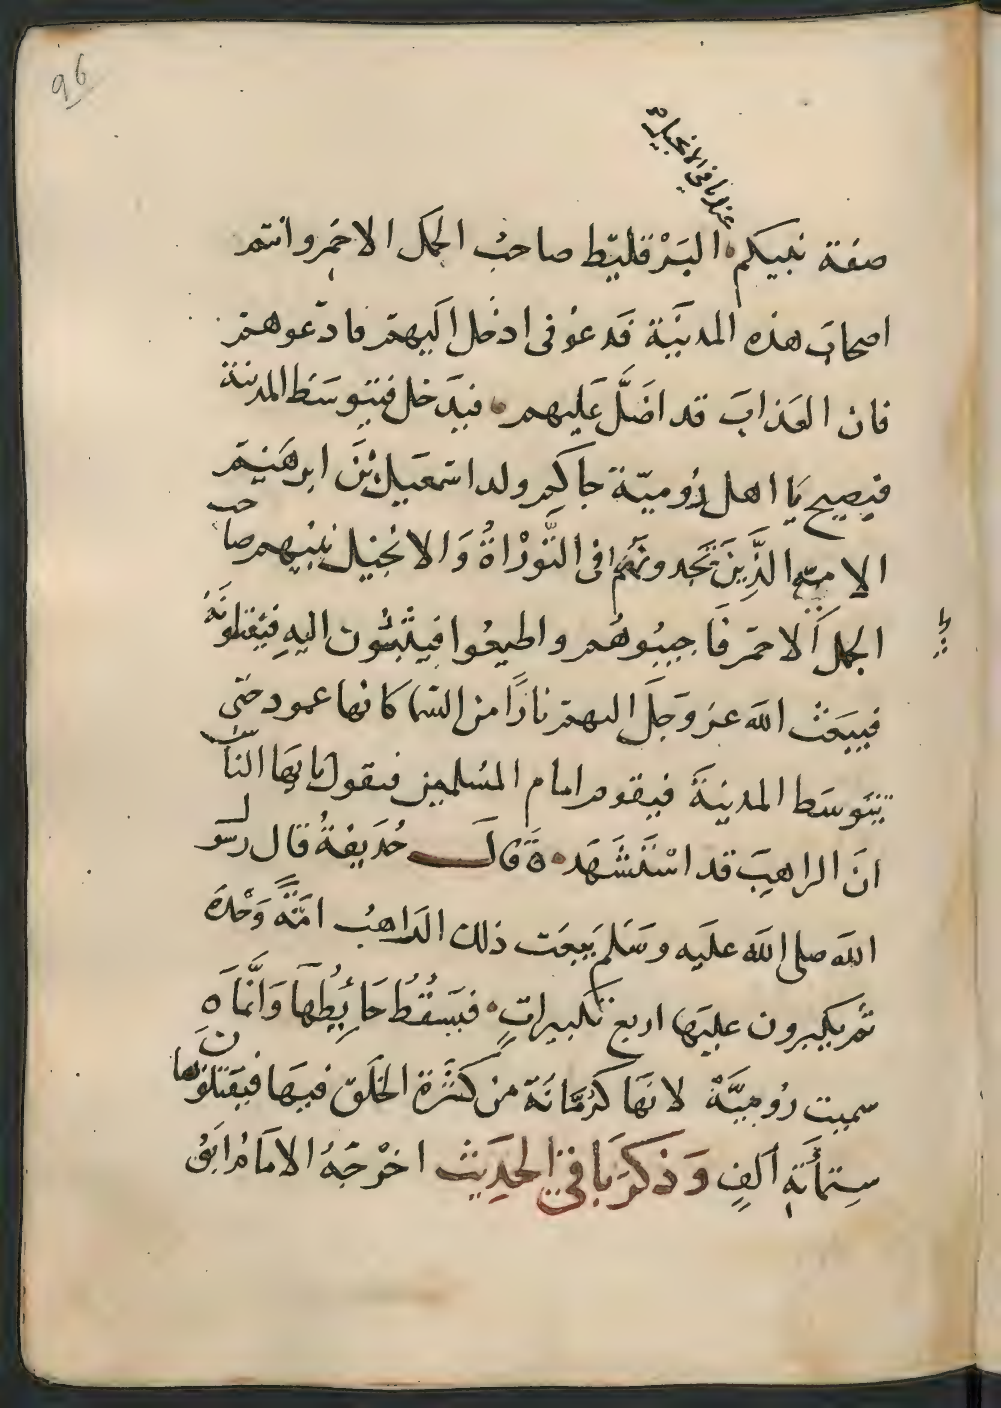 96
عندنا في الانجيل
صفة نبيكم البَرْقليّط صاحبُ الجمل الاحمر وانتم
اصحابَ هذه المدينَة فدعوُنى ادخل اليهم فادعوهم
فان العذابَ قد اضَلَّ عَليهم فيَدخل فيتوسَط المدينة
فيصيح يَا اهل رُوميّة جاكم ولد اسمَعيل بْنَ ابرهَيم
الاميّه الذَّينَ تَجدونَهُم فى التَّورْاةُ وَالانجيل نبيُهم صاحب
الجمل اَلاحمَر فَاجيبُوهُم واطيعُوا فيثبُون اليهِ فيَقتلونَهُ
فيبَعَث الله عز وَجَل اليهم نارًا من السَّما كانها عمود حتى
يتوسَط المدينةَ فيقوم امام المسُلمين فيقول يا يها الناس
انَ الراهبَ قد اسْتَشهَد ه قال حُذيفةُ قال رسَول
الله صلى الله عليَه وسَلم يَبعَث ذلك الراهبُ امَّةً وَحْدَه
ثم يكبرون عليَها اربع تكبيراتٍ فيَسقُطُ حَائِطُهَا وَانَّمَا ه
سميت رُوميَّةْ لانهَا كرُمَّانَة من كثَرة الخلق فيهَا فيَقتلونَ بها
سِتمأَئةِ اَلفٍ وَذكَرَ بَاقيْ الحدِيَث اخْرَجَهُ الامَامُ ابَوُ